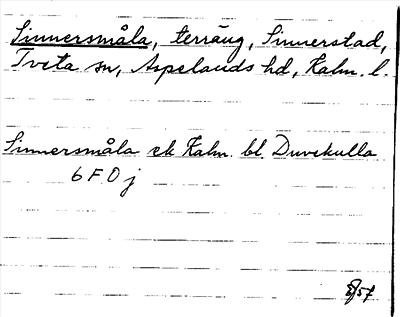 Sinnersmåla, terräng, Sinnerstad,
Tveta sn, Aspelands hd, Kalm. l.
Sinnersmåla ek Kalm. bl. Duvekulla
6 F 0 j
8/57